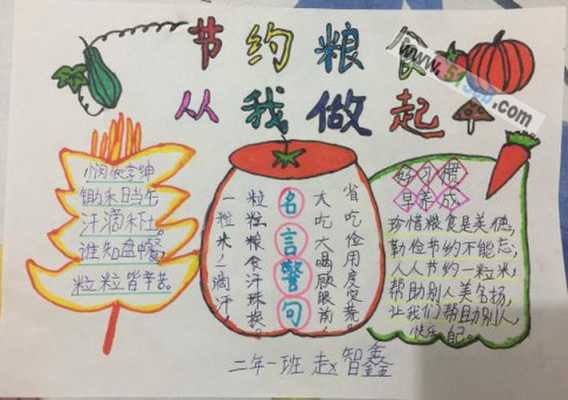 节约粮食
从我做起
悯农李绅
锄禾日当午
汗滴禾下土。
谁知盘中餐,
粒粒皆辛苦。
名言警句
一粒米,一滴汗,
粒粒粮食汗珠换。
大吃大喝顾眼前,
省吃俭用度灾荒。
好习惯
早养成
珍惜粮食是美德,
勤俭节约不能忘,
人人节约一粒米,
帮助别人美名扬,
让我们帮助别人,
快乐自己。
二年一班 赵智鑫